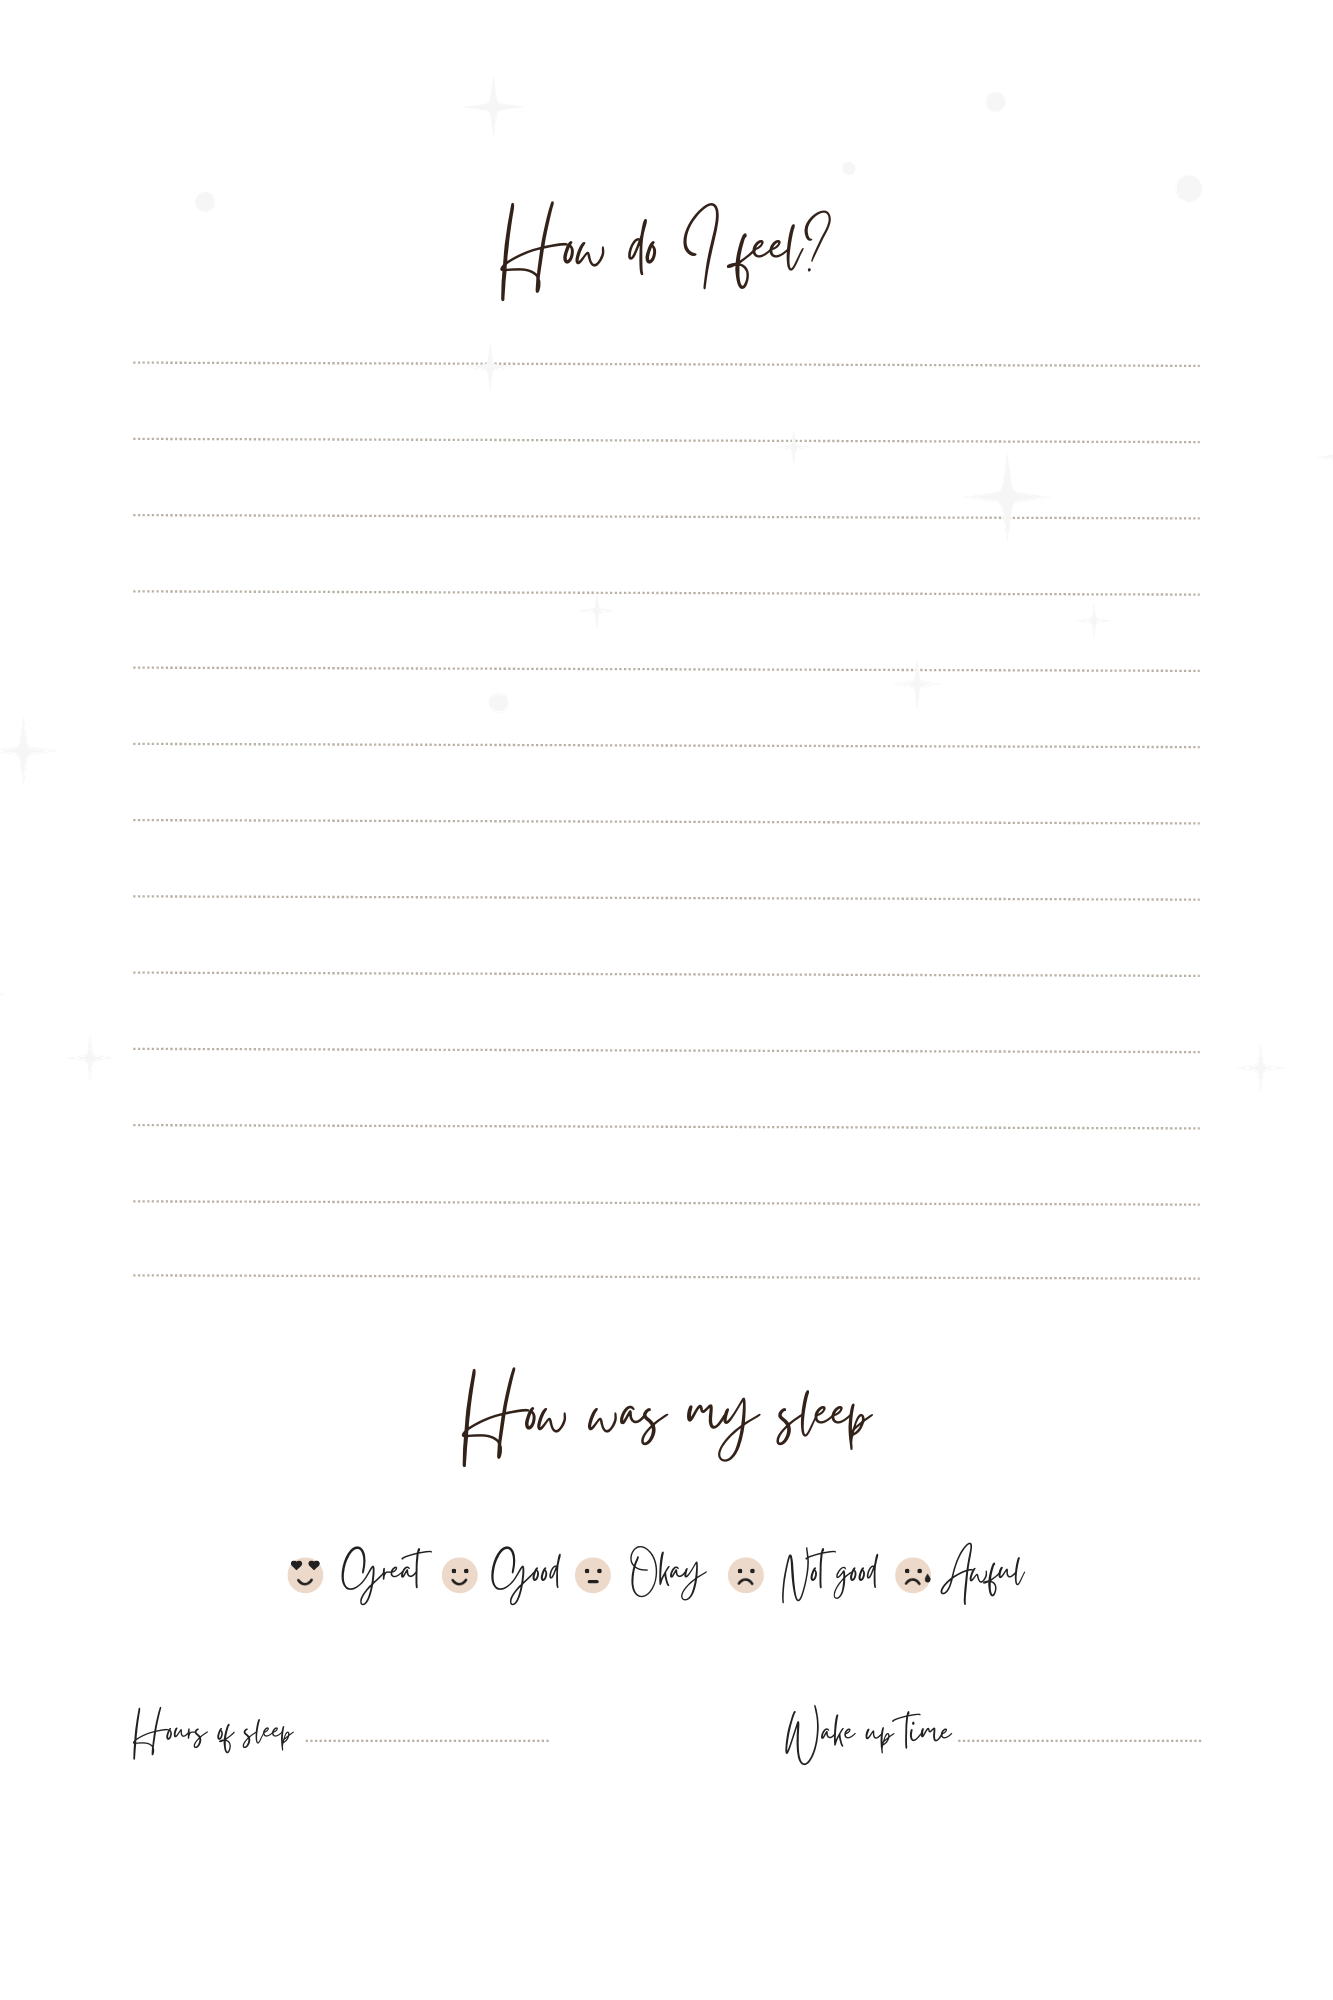 How do I feel?
How was my sleep
Great Good Okay Not good Awful
Hours of sleep Wake up time